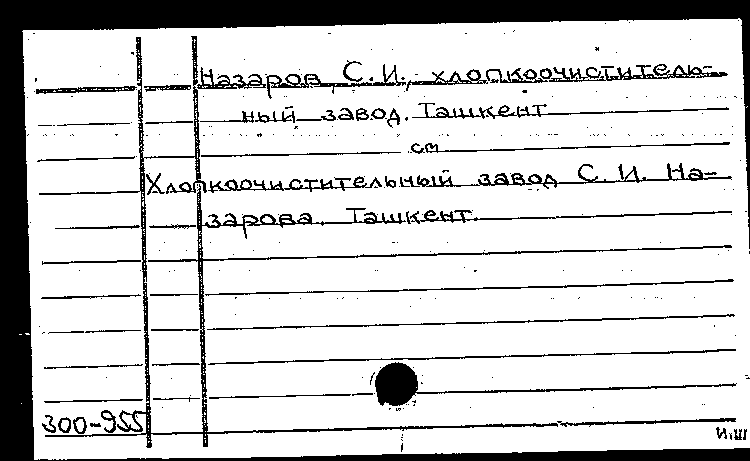 Назаров, С.И., хлопкоочиститель-
ный завод. Ташкент
см
Хлопкоочистительный завод С. И. На-
зарова. Ташкент.
300-955
И.Ш